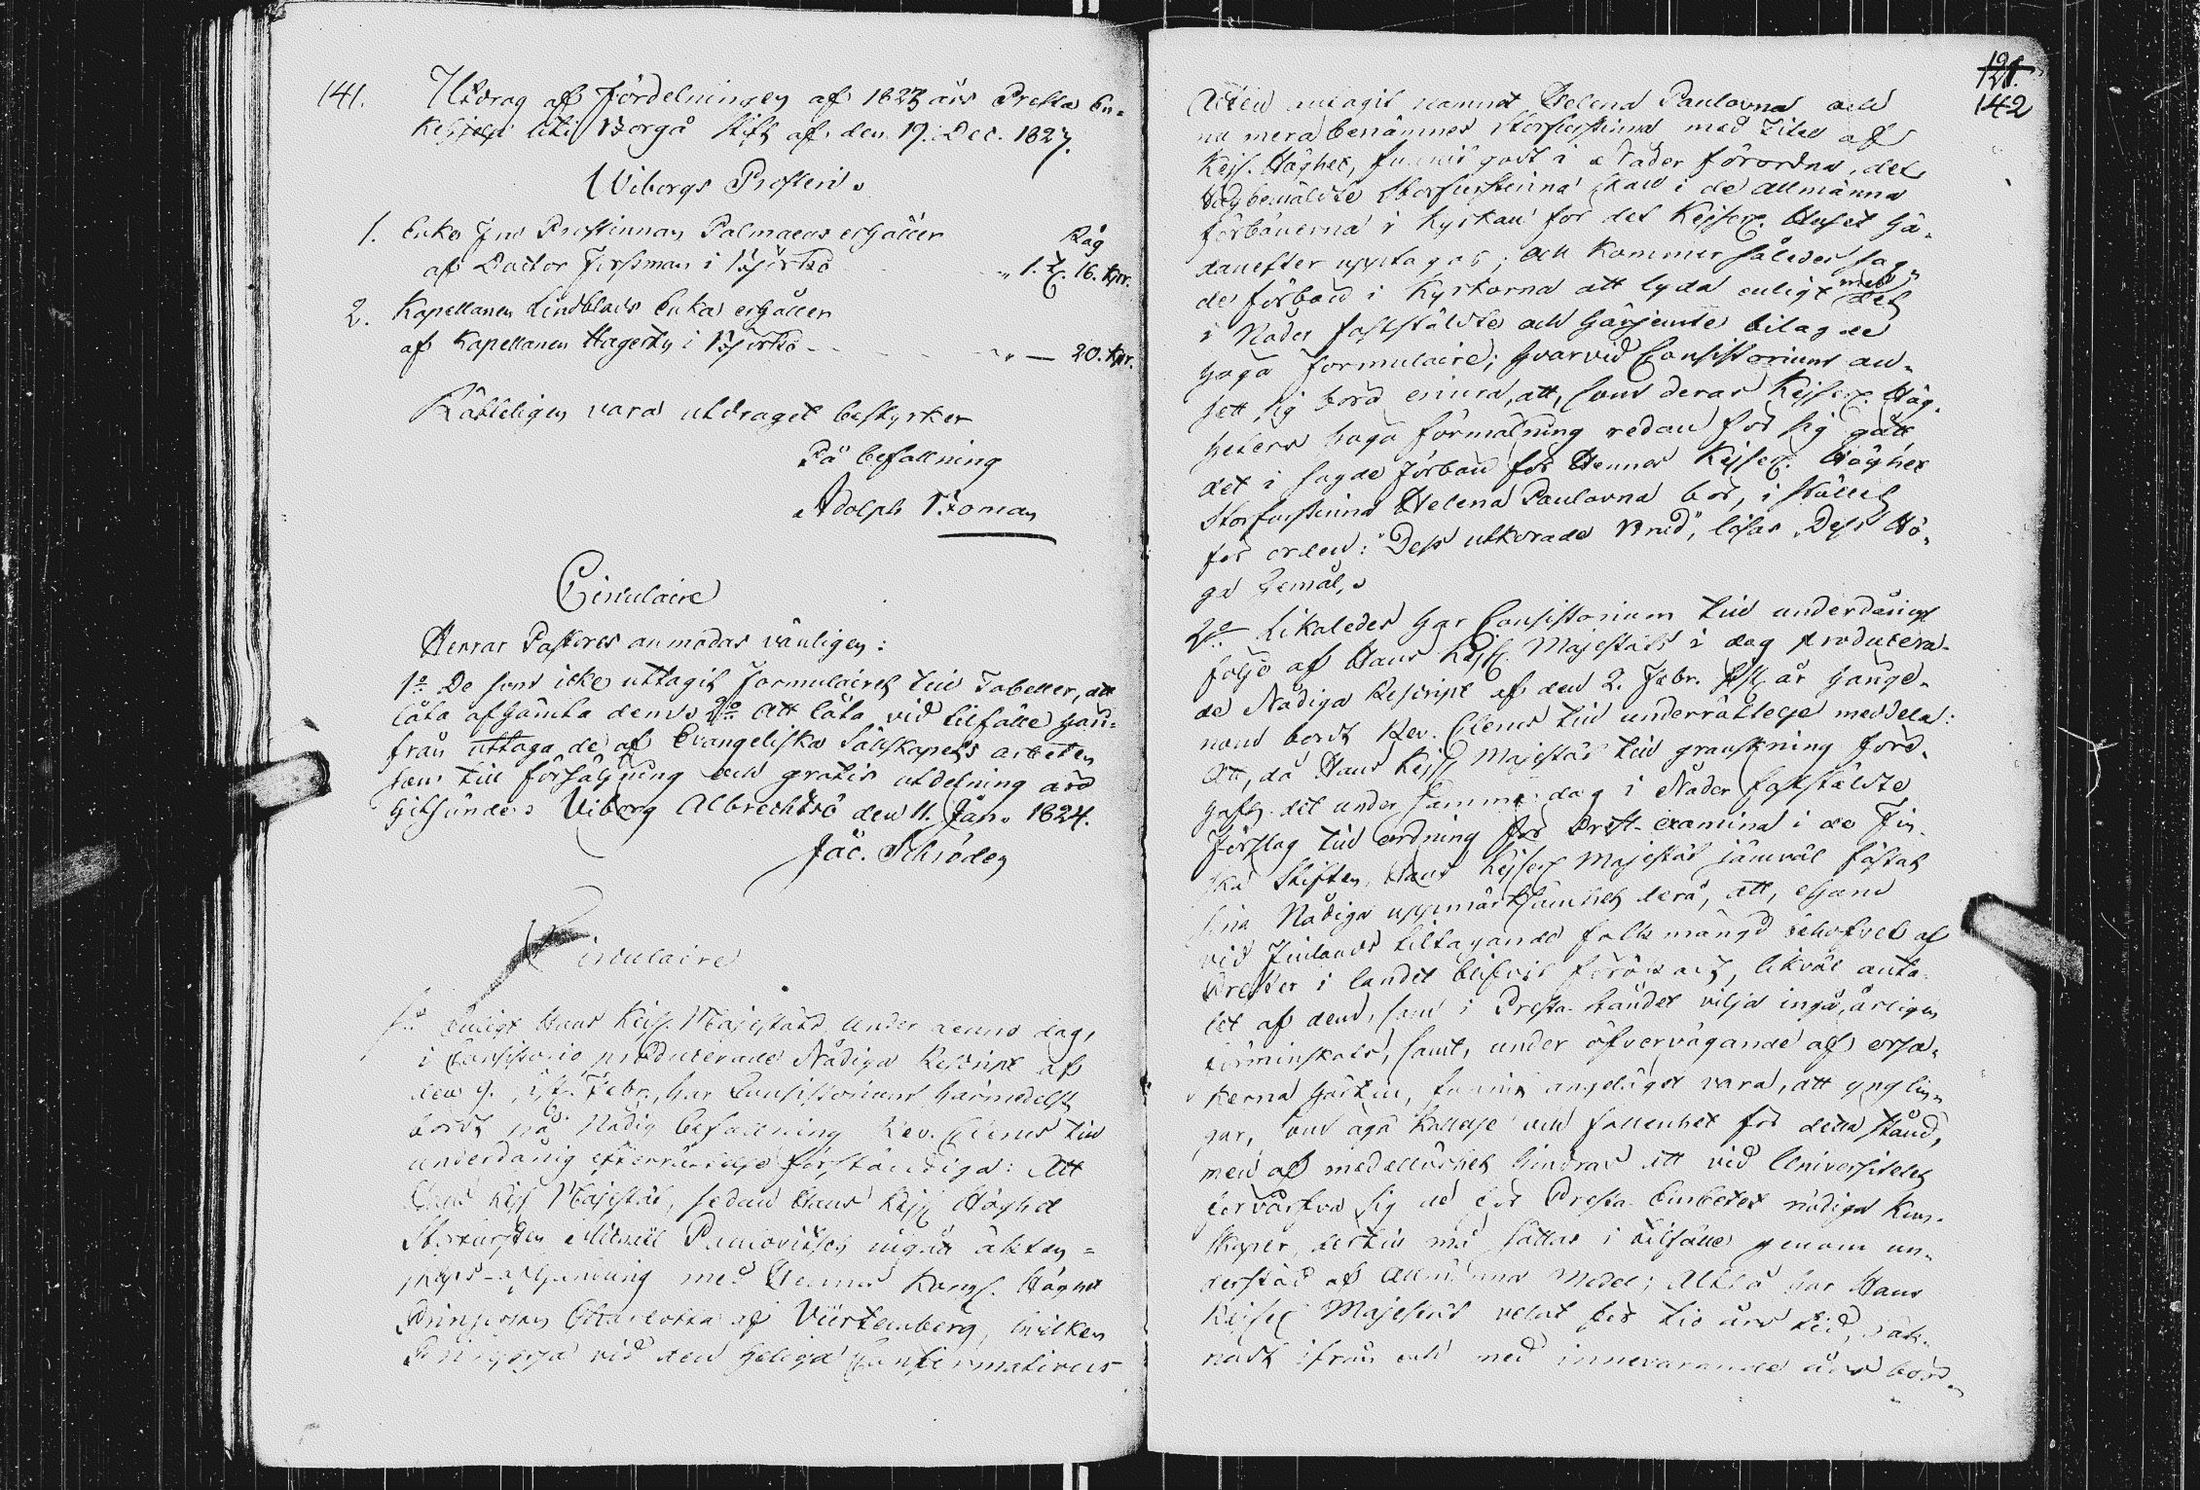 141.
Utdrag af Fördelningen af 1823 års Presta En-
kehjelp uti Borgå Stift af den 17. Dec. 1823.
Wiborgs Prosteri.
1. Enke Fru Prostinnan Palmaeus erhåller Råg
af Doctor Forssman i Björkö 1. T. 16. kpr.
2. Kapellanen Lindblads Enka erhåller
af Kapellanen Hagert i Björkö — 20. kpr.
Rätteligen vara utdraget bestyrker
På befallning
Adolph Roman
Circulaire
Herrar Pastores anmodas vänligen:
1o De som icke uttagit Formulairet till Tabeller, att
låta afhämta dem. 2o Att låta vid tilfälle här-
från uttaga de af Evangeliska Sällskapets arbeten
som till försäljning och gratis utdelning äro
hitsände. Viborg Albrechtsö den 11. Jan. 1824.
Jac. Schröder
Circulaire
1o Enligt Hans Keis. Majestäts under denna dag,
i Consistorio producerade Nådiga Rescript af
den 9. Febr., har Consistorium härmedelst
bordt på Nådig befallning Rev. Clerus till
underdånig efterrättelse förständiga: Att
Hans Kejs Majestät, sedan Hans Kejs Höghet
Storfursten Michaël Paulovitsch ingått äkten-
skaps-afhandling med Hennes Kungl. Höghet
Prinsessan Charlotta af Vürtemberg, hvilken
Prinsessa vid den heliga Confirmations
121.
142
Acten antagit namnet Helena Paulovna och
nu mera benämnes Storfurstinna med Titel af
Kejs. Höghet, funnit godt i Nåder förordna, det
Högbemäldte Storfurstinna skall i de allmänna
förbönerna i Kyrkan för det Kejserl. Huset hä-
danefter upptagas; och kommer således sag-
de förbön i Kyrkorna att lyda enligt med det
i Nåder fastställdte och härjemte bilagde
höga formulaire; hvarvid Consistorium an-
sett sig böra erinra, att, som deras Kejserl. Hög-
heters höga förmälning redan för sig gått
det i sagde förbön för Hennes Kejserl. Höghet
Storfurstinna Helena Paulovna bör, i stället
för orden: "Dess utkorade Brud", läsas "Dess Hö-
ga Gemål".
2o Likaledes har Consistorium till underdånigt
följe af Hans Kejs. Majestäts i dag producera-
de Nådiga Rescript af den 2. Febr. sistl. år härige-
nom bordt Rev. Clerus till underrättelse meddela:
Att, då Hans Kejs Majestät till granskning före-
haft det under samma dag i Nåder fastställdte
Förslag till ordning för Prest-examina i de Fin-
ska Stiften, Hans Kejserl Majestät jämväl fästat
sin Nådiga uppmärksamhet derå, att, ehuru
vid Finlands tilltagande folkmängd behofvet af
Prester i landet blifvit förökadt, likväl anta-
let af dem, som i Presta-ståndet vilja ingå, årligen
förminskats, samt, under öfvervägande af orsa-
kerna härtill, funnit angeläget vara, att ynglin-
gar, som äga kallelse och fallenhet för detta stånd,
men af medellöshet hindras att vid Universitetet
förvärfva sig de för Presta-Embetet nödiga kun-
skaper, dertill må sättas i tilfälle genom un-
derstöd af allmänna medel; Altså har Hans
Kejserl Majestät velat för tio års tid, räk-
nadt ifrån och med innevarande års bör-